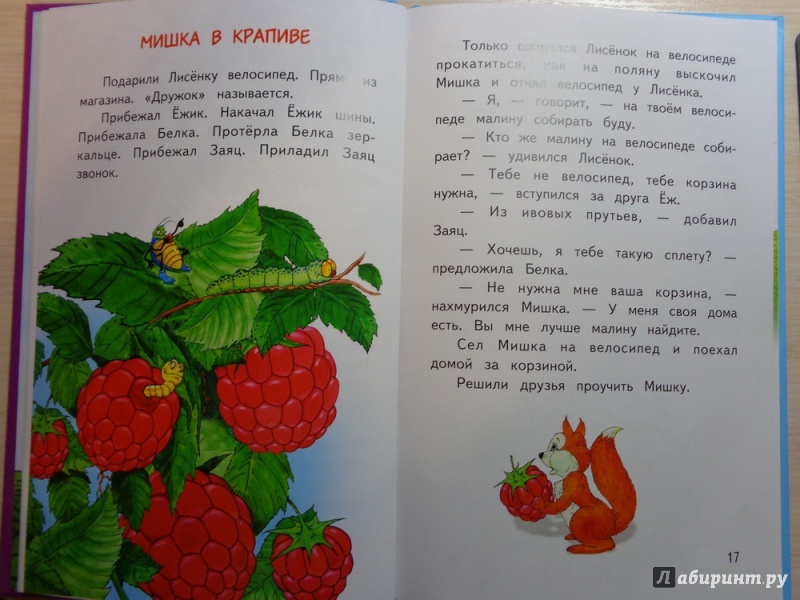 МИШКА В КРАПИВЕ
Подарили Лисёнку велосипед. Прямо из
магазина. «Дружок» называется.
Прибежал Ёжик. Накачал Ёжик шины.
Прибежала Белка. Протёрла Белка зер-
кальце. Прибежал Заяц. Приладил Заяц
звонок.
Только собрался Лисёнок на велосипеде
прокатиться, как на поляну выскочил
Мишка и отнял велосипед у Лисёнка.
— Я, — говорит, — на твоём велоси-
педе малину собирать буду.
— Кто же малину на велосипеде соби-
рает? — удивился Лисёнок.
— Тебе не велосипед, тебе корзина
нужна, — вступился за друга Ёж.
— Из ивовых прутьев, — добавил
Заяц.
— Хочешь, я тебе такую сплету? —
предложила Белка.
— Не нужна мне ваша корзина, —
нахмурился Мишка. — У меня своя дома
есть. Вы мне лучше малину найдите.
Сел Мишка на велосипед и поехал
домой за корзиной.
Решили друзья проучить Мишку.
17
Лабиринт.ру